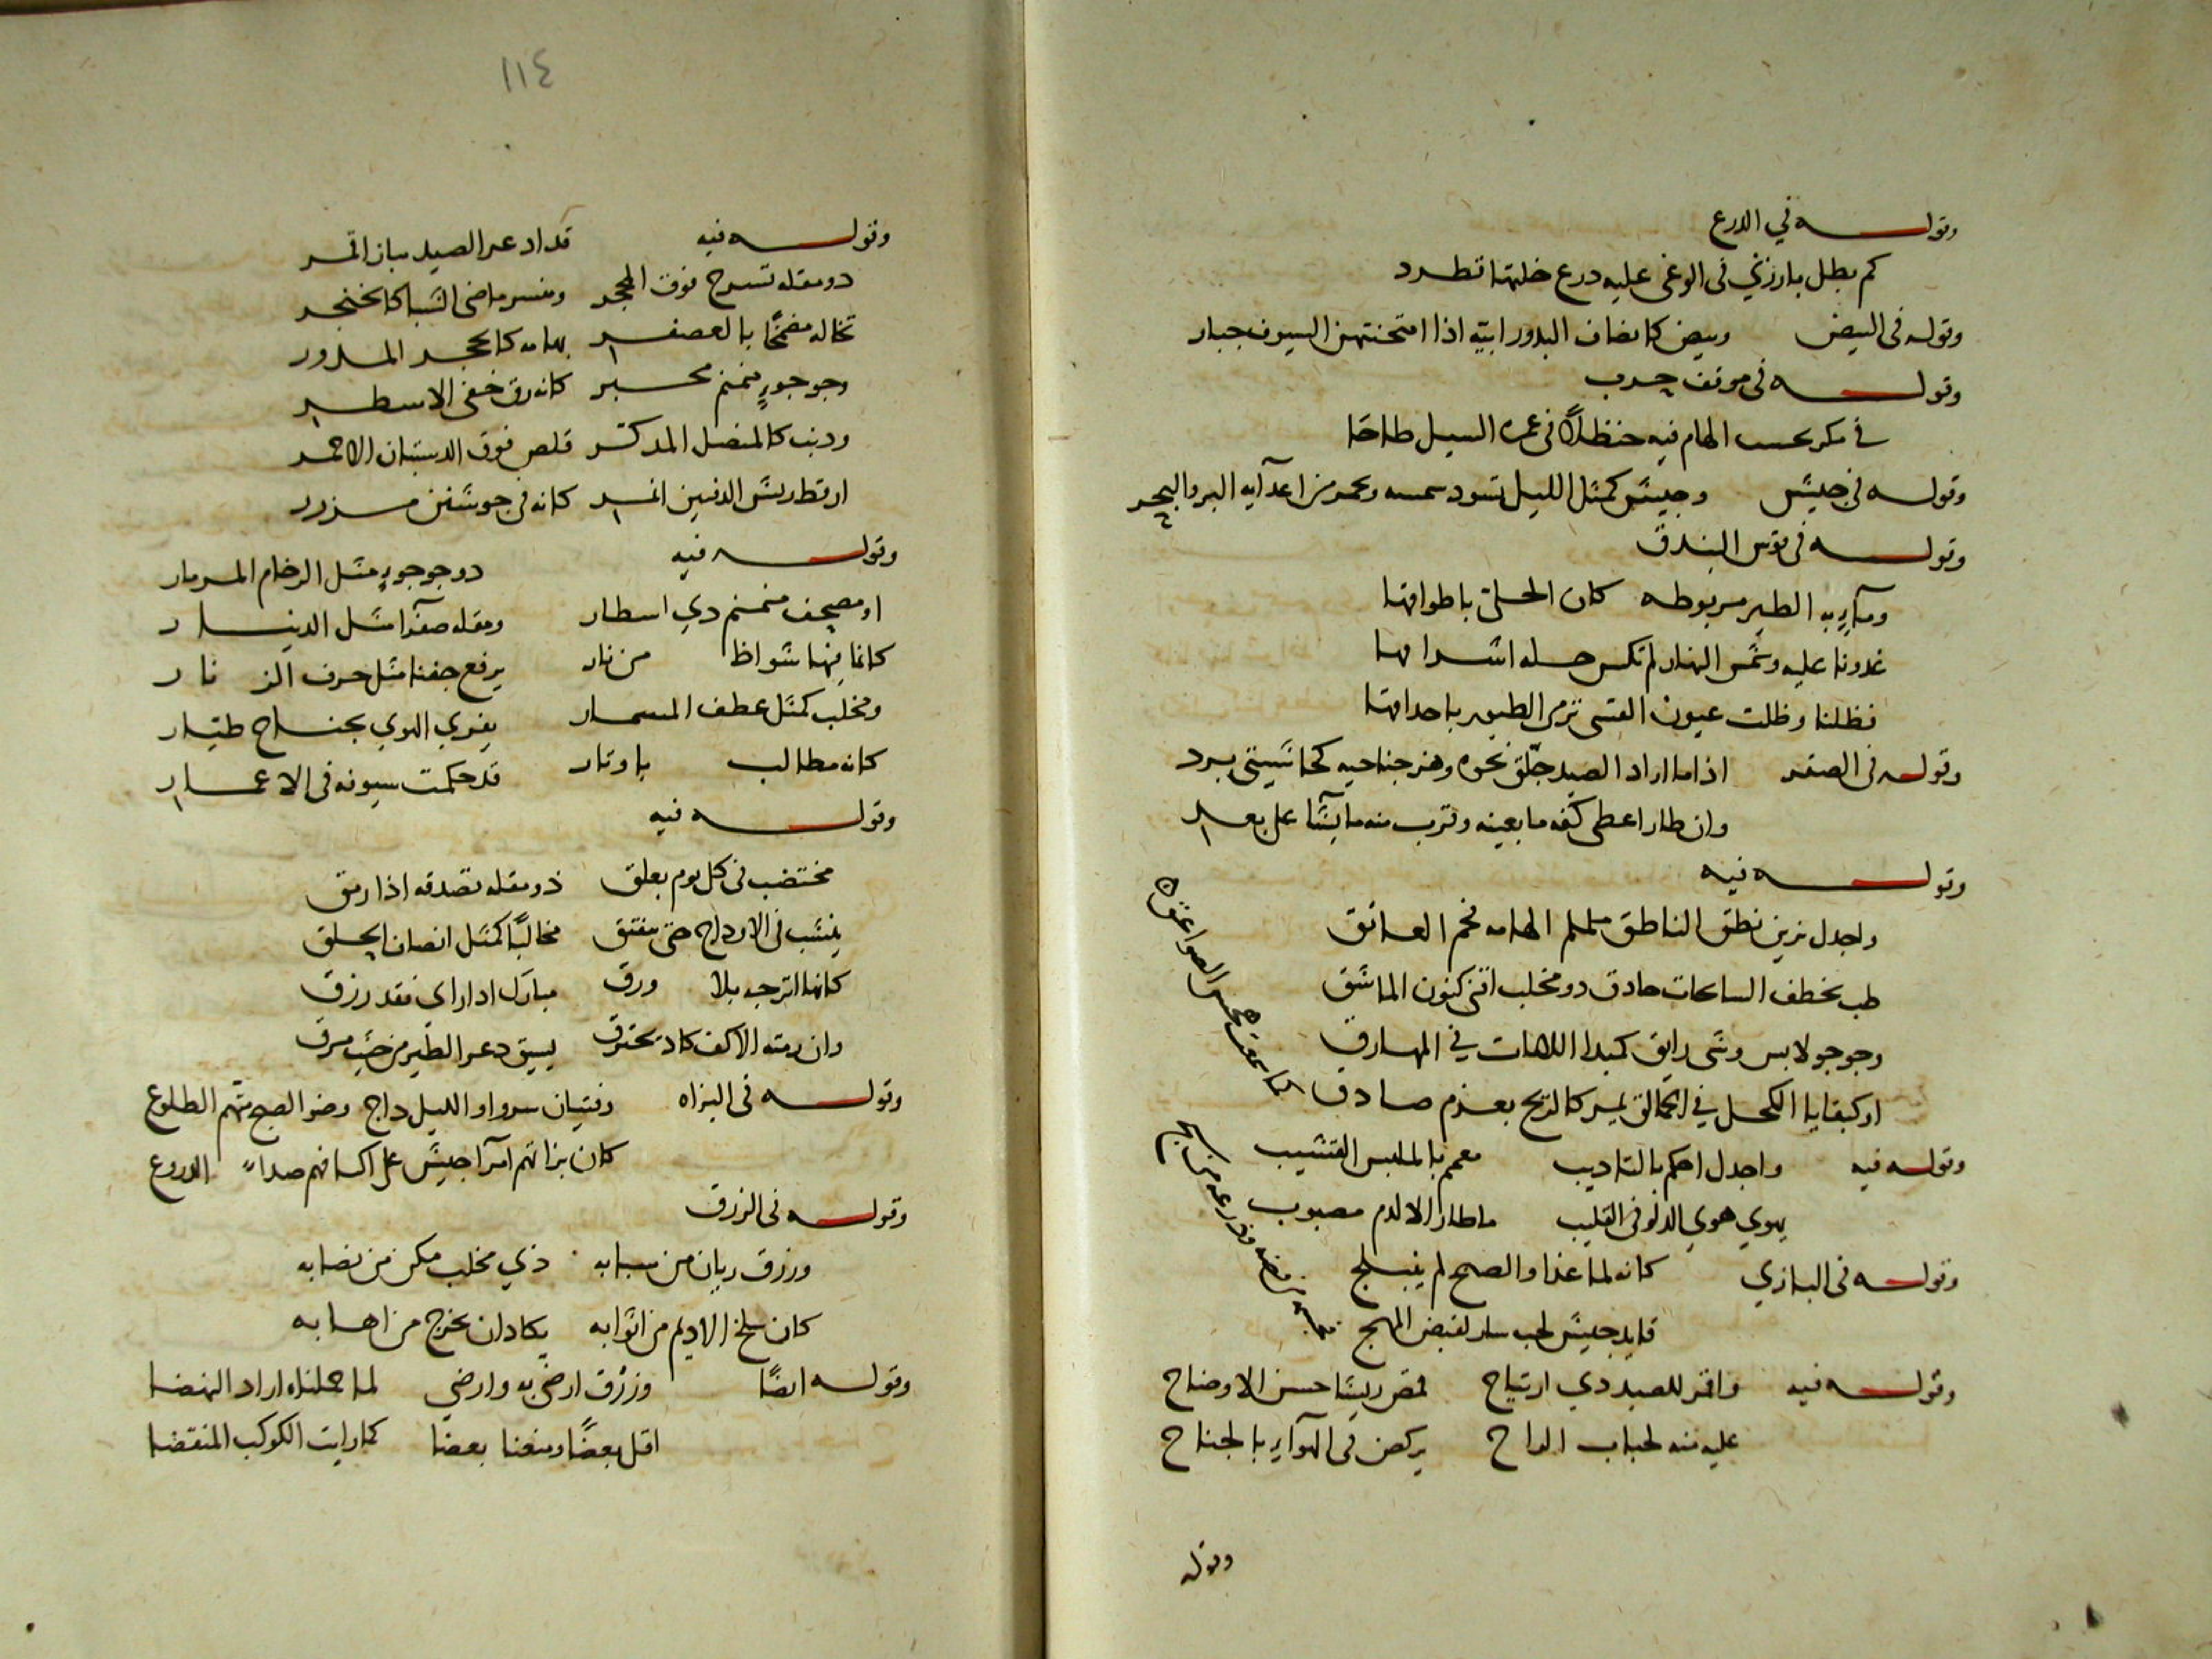 وقوله في الدرع
كم بطل بارزني فى الوغى عليه درع خلتها تطرد
وقوله فى البيض وبيض كانصاف البدور ابيّه اذا امتحنتهن السيوف جبار
وقوله فى موقف حرب
في مكر تحسب الهام فيه حنظلاً فى غمره السيل طاحا
وقوله فى جيش وجيش كمثل الليل تسود شمسه وتحمر من اعدآيه البر والبحر
وقوله فى قوس البندق
ومآء به الطير مربوطه كان الحلى باطواقها
غدونا عليه وشمس النهار لم تكس حله اشراقها
فظلنا وظلت عيون القسى ترمى الطيور باحداقها
وقوله فى الصقر اذا ما اراد الصيد حلّق نحوه وهز جناحيه كحاشيتى برد
وان طار اعطى كفه ما بعينه وقرب منه ما يشآ على بعد
وقوله فيه
واجدل يزين نطق الناطق ململم الهامه فخم العاتق
طب بخطف السابحات حاذق ذو مخلب اقنى كنون الماشق
وجوجو لابس وشى رايق كمبدا اللامات في المهارق
او كبقايا الكحل في الحمالق يمر كالريح بعزم صادق
كما سمعت بحس الصواعق
وقوله فيه واجدل احكم بالتاديب معمم بالملبس القشيب
يهوي هوي الدلو فى القليب ما طار الا لدم مصبوب
وقوله فى البازي كانه لما غدا والصبح لم ينبلج
قايد جيش لجب سار لقبض المهج
وقوله فيه واقمر للصيد ذي ارتياح قمص ريشا حسن الاوضاح
عليه منه لحباب الراح يركض فى الهوآء بالجناح
وقوله
١١٤
وقوله فيه قد اذعر الصيد بباز اقمر
ذو مقله تسرح فوق المحجر ومنسر ماضى الشبا كالخنجر
تخاله مضمخًا بالعصفر بهامه كالحجر المدور
وجوجوءٍ منمنم محبر كانه رق خفى الاسطر
وذنب كالمنصل المذكر قلص فوق الدستبان الاحمر
ارقط ريش الدفين انمر كانه فى جوشن مزرر
وقوله فيه ذو جوجوءٍ مثل الرخام المرمار
او مصحف منمنم ذي اسطار ومقله صفرآ مثل الدينار
كانما فيها شواظ من نار يرفع جفنا مثل حرف الزنار
ومخلب كمثل عطف المسمار يفري الهوي بجناح طيّار
كانه مطالب باوتار قد حكمت سيوفه فى الاعمار
وقوله فيه
مختضب فى كل يوم بعلق ذو مقله تصدقه اذا رمق
ينشب فى الاوداج حتى تنفتق مخالبًا كمثل انصاف الحلق
كانها اترجه بلا ورق مبارك اذا راى فقد رزق
وان رمته الاكف كاد يحترق يسبق ذعر الطير من حيث مرق
وقوله فى البزاه وفتيان سروا والليل داج وضوا الصبح متهم الطلوع
كان بزاتهم امرآ جيش على اكتافهم صداء الدروع
وقوله فى الزرق
وزرق ريان من شبابه ذي مخلب مكن من نصابه
كان سلخ الاديم من اثوابه يكاد ان يخرج من اهابه
وقوله ايضًا وزرق ارضى به وارضي لما حملناه اراد النهضا
اقل بعضًا ومنعنا بعضا كما رايت الكوكب المنقضا